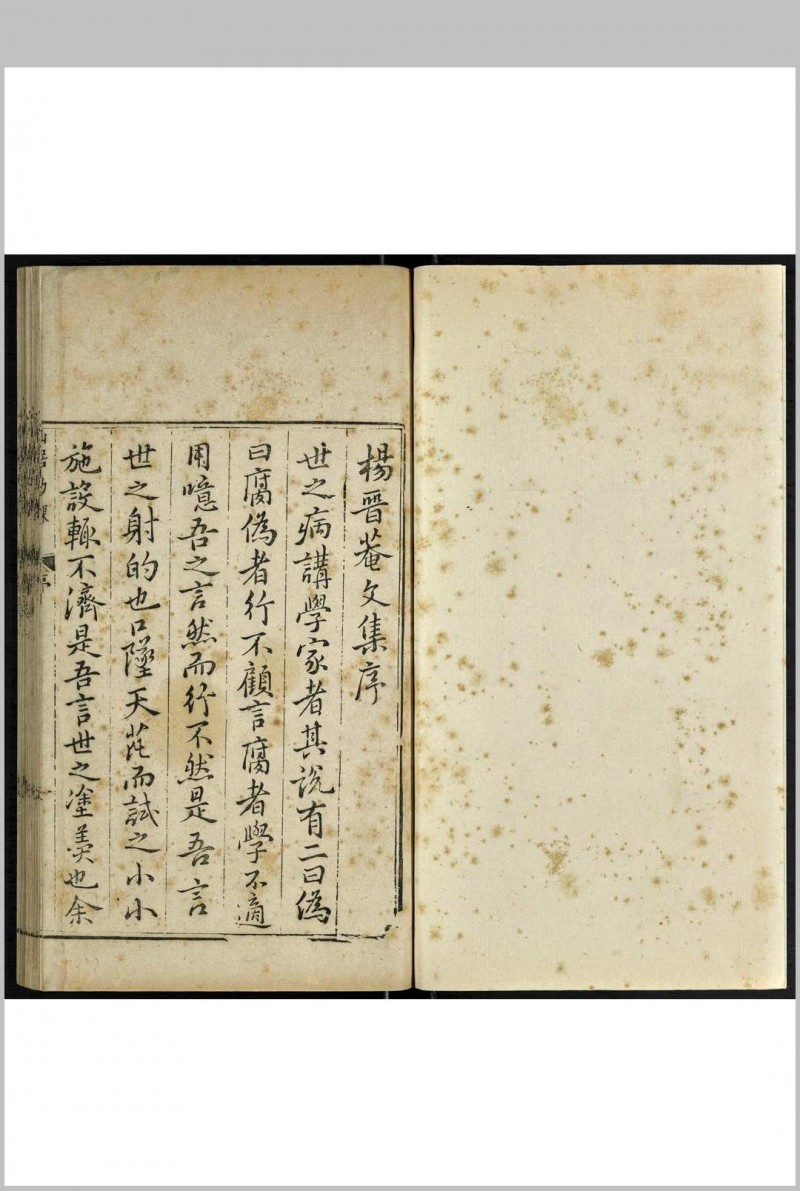 楊晉菴文集序
世之病講學家者其說有二曰偽
曰腐偽者行不顧言腐者學不適
用噫吾之言然而行不然是吾言
世之射的也口墜天花而試之小小
施設輒不濟是吾言世之塗羹也余